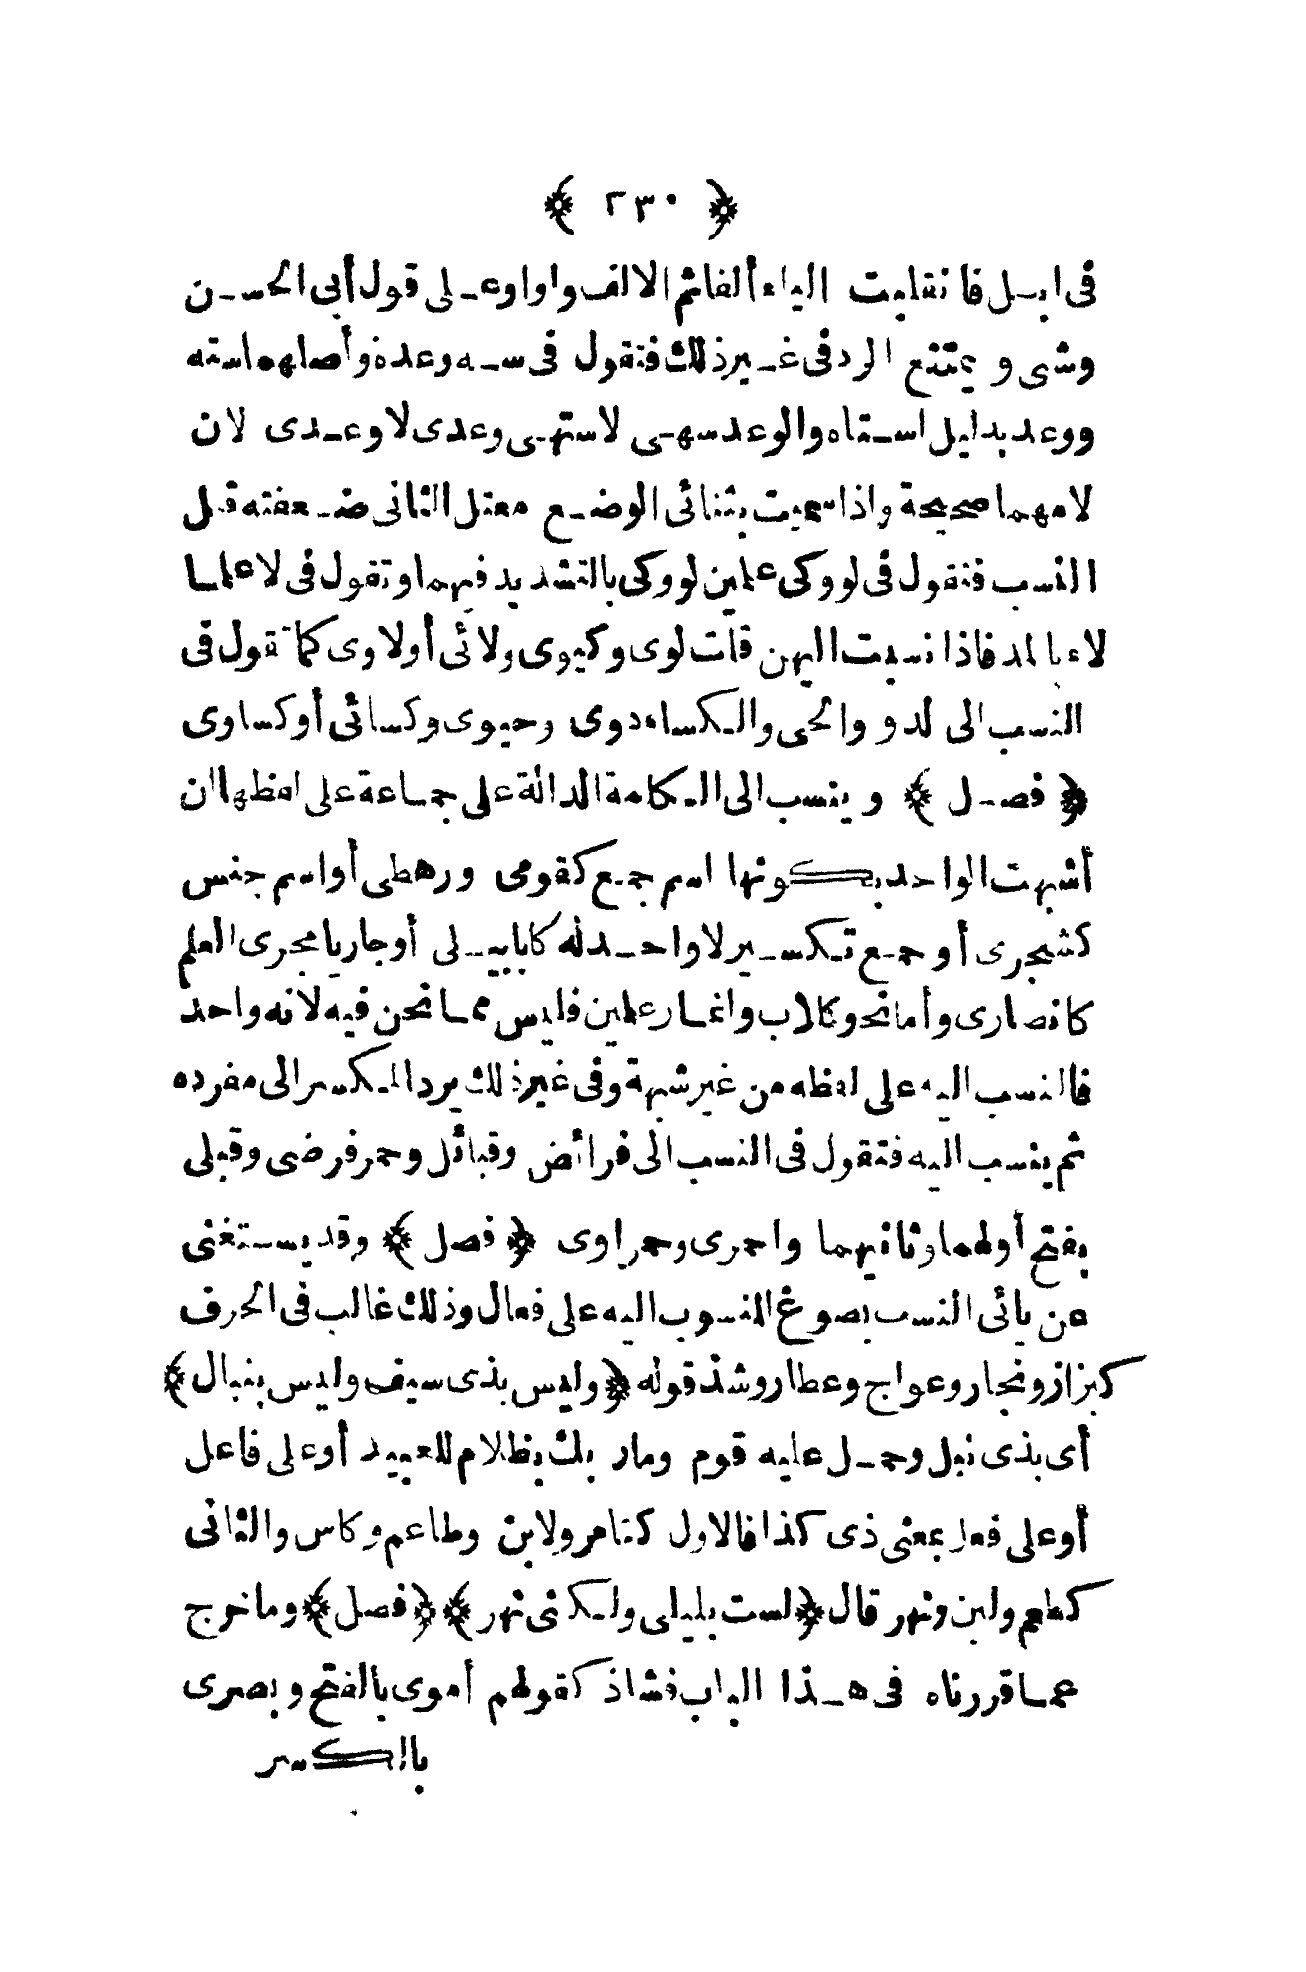 ﴿ ٢٣٠ ﴾
فى ابل فانقلبت الياء ألفا ثم الالف واوا وعلى قول أبى الحسن
وشى ويمتنع الرد فى غير ذلك فتقول فى سه وعدة وأصلهما سته
ووعد بدليل استاه والوعد سهى لاستهى وعدى لا وعدى لان
لامهما صحيحة واذا سميت بثنائى الوضع معتل الثانى ضعفته قبل
النسب فتقول فى لو وكى علمين لو وكى بالتشديد فيهما وتقول فى لا علما
لاء بالمد فاذا نسبت اليهن قلت لوى وكيوى ولائى أولاوى كما تقول فى
النسب الى الدو والحى والكساء دوى وحيوى وكسائى أو كساوى
﴿ فصل ﴾ وينسب الى الكلمة الدالة على جماعة على لفظها ان
أشبهت الواحد بكونها اسم جمع كقومى ورهطى أو اسم جنس
كشجرى أو جمع تكسير لا واحد له كابابيلى أو جاريا مجرى العلم
كانصارى وأما نحو كلاب وانمار علمين فليس مما نحن فيه لانه واحد
فالنسب اليه على لفظه من غير شبهة وفى غير ذلك يرد المكسر الى مفرده
ثم ينسب اليه فتقول فى النسب الى فرائض وقبائل وحمر فرضى وقبلى
بفتح أولهما وثانيهما واحمرى وحمراوى ﴿ فصل ﴾ وقد يستغنى
عن يائى النسب بصوغ المنسوب اليه على فعال وذلك غالب فى الحرف
كبزاز ونجار وعواج وعطار وشذ قوله ﴿وليس بذى سيف وليس بنبال﴾
أى بذى نبل وحمل عليه قوم وما ربك بظلام للعبيد أو على فاعل
أو على فعل بمعنى ذى كذا فالاول كتامر ولابن وطاعم وكاس والثانى
كطعم ولبن ونهر قال ﴿لست بليلى ولكنى نهر﴾ ﴿فصل﴾ وما خرج
عما قررناه فى هذا الباب فشاذ كقولهم أموى بالفتح وبصرى
بالكسر